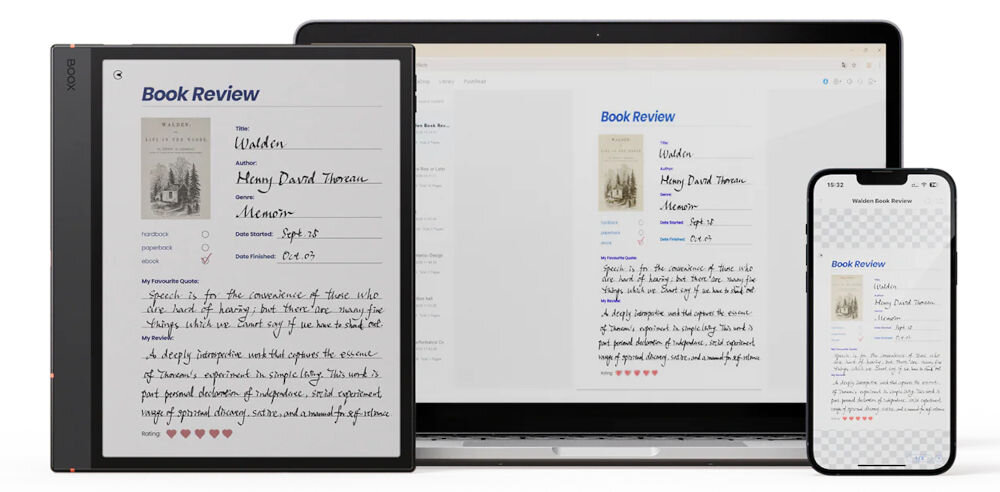 BOOX
Book Review
WALDEN.
LIFE IN THE WOODS.
Title:
Walden
Author:
Henry David Thoreau
Genre:
Memoir
hardback
paperback
ebook
Date Started: Sept. 28
Date Finished: Oct. 03
My Favourite Quote:
Speech is for the convenience of those who
are hard of hearing; but there are many fine
things which we cannot say if we have to shout.
My Review:
A deeply introspective work that captures the essence
of Thoreau's experiment in simple living. This work is
part personal declaration of independence, social experiment,
voyage of spiritual discovery, satire, and a manual for self-reliance
Rating:
Library
Book Review
WALDEN.
Title:
Walden
Author:
Henry David Thoreau
Genre:
Memoir
hardback
paperback
ebook
Date Started: Sept. 28
Date Finished: Oct. 03
My Favourite Quote:
Speech is for the convenience of those who
are hard of hearing; but there are many fine
things which we cannot say if we have to shout.
My Review:
A deeply introspective work that captures the essence
of Thoreau's experiment in simple living. This work is
part personal declaration of independence, social experiment,
voyage of spiritual discovery, satire, and a manual for self-reliance
Rating:
15:32
Walden Book Review
Book Review
Title:
Walden
Author:
Henry David Thoreau
Genre:
Memoir
Date Started: Sept. 28
Date Finished: Oct. 03
My Favourite Quote:
Speech is for the convenience of those who
are hard of hearing; but there are many fine
things which we cannot say if we have to shout.
My Review:
A deeply introspective work that captures the essence
of Thoreau's experiment in simple living. This work is
part personal declaration of independence, social experiment,
voyage of spiritual discovery, satire, and a manual for self-reliance
Rating: